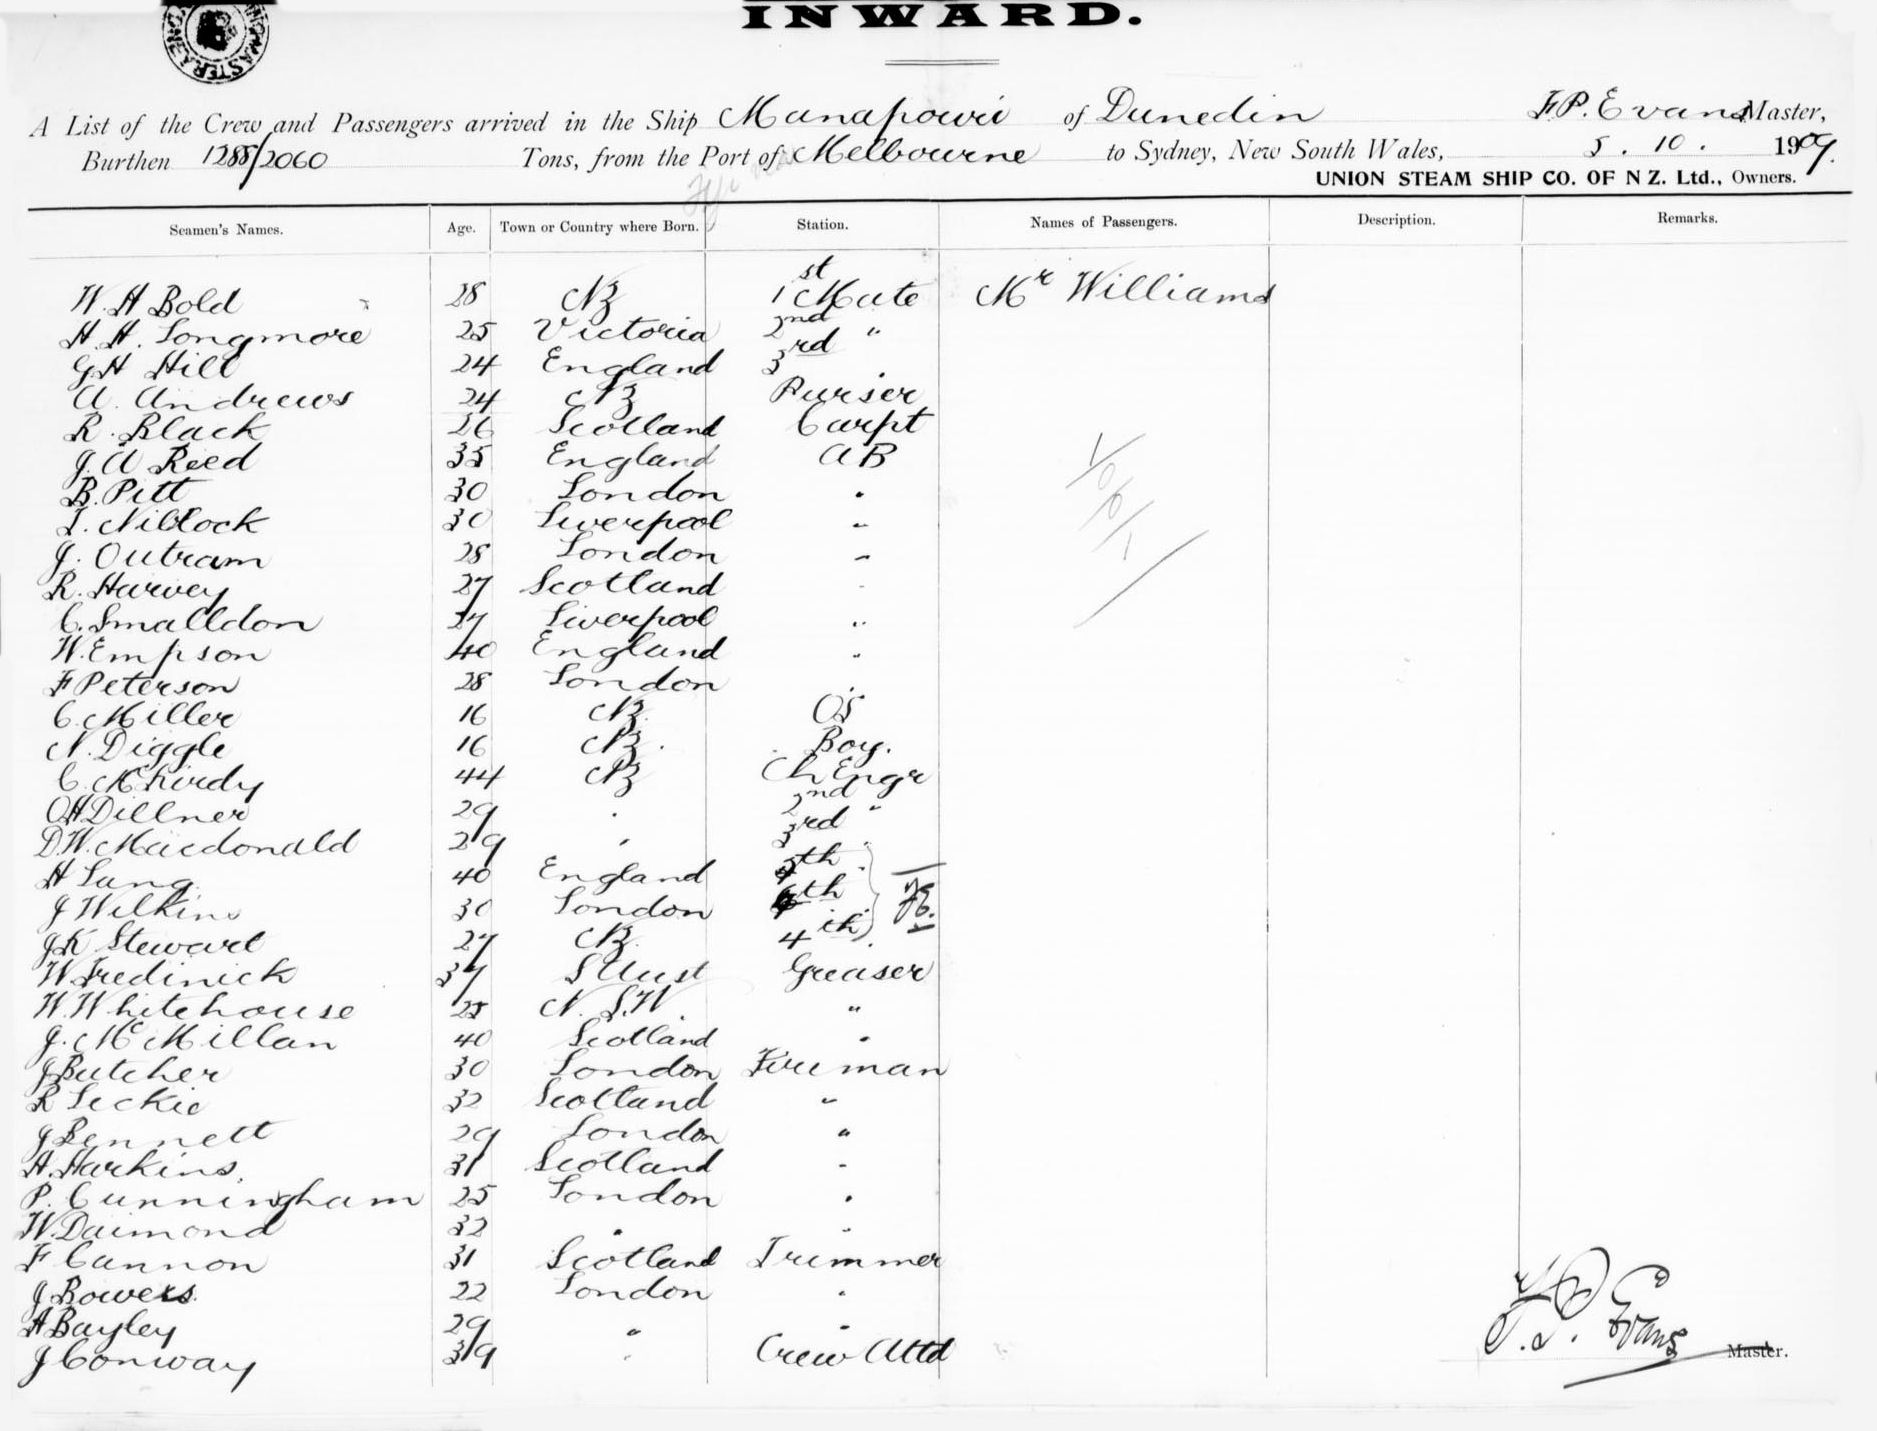 INWARD.
A List of the Crew and Passengers arrived in the Ship Manapouri of Dunedin F.P. Evans Master,
Burthen 1288/2060 Tons, from the Port of Melbourne to Sydney, New South Wales, 5. 10. 1909.
UNION STEAM SHIP CO. OF N Z. Ltd., Owners.
Seamen's Names. Age. Town or Country where Born. Station. Names of Passengers. Description. Remarks.
W. H Bold 28 NZ 1st Mate Mr Williams
H. H. Longmore 25 Victoria 2nd "
G H Hill 24 England 3rd "
A. Andrews 24 NZ Purser
R. Black 26 Scotland Carpt
J. A Reed 35 England AB
B. Pitt 30 London "
T. Niblock 30 Liverpool "
J. Outram 28 London "
R. Harvey 27 Scotland "
C. Smalldon 27 Liverpool "
W. Empson 40 England "
F Peterson 28 London "
C. Miller 16 NZ. OS
N. Diggle 16 NZ. Boy.
C. McKirdy 44 NZ Ch Engr
O H Dillner 29 " 2nd "
D. W. Macdonald 29 " 3rd "
H Lang 40 England 5th "
J Wilkins 30 London 6th "
J K Stewart 27 NZ. 4th "
W. Tredinick 37 S Aust Greaser
W. Whitehouse 25 N. S. W. "
J. McMillan 40 Scotland "
J Butcher 30 London Fireman
R Leckie 32 Scotland "
J Bennett 29 London "
H. Harkins. 31 Scotland "
P. Cunningham 25 London "
W. Daimond 32 " "
F Cannon 31 Scotland Trimmer
J Bowers. 22 London "
A Bayley 29 " "
J Conway 39 " Crew Attd
F. P. Evans
Master.